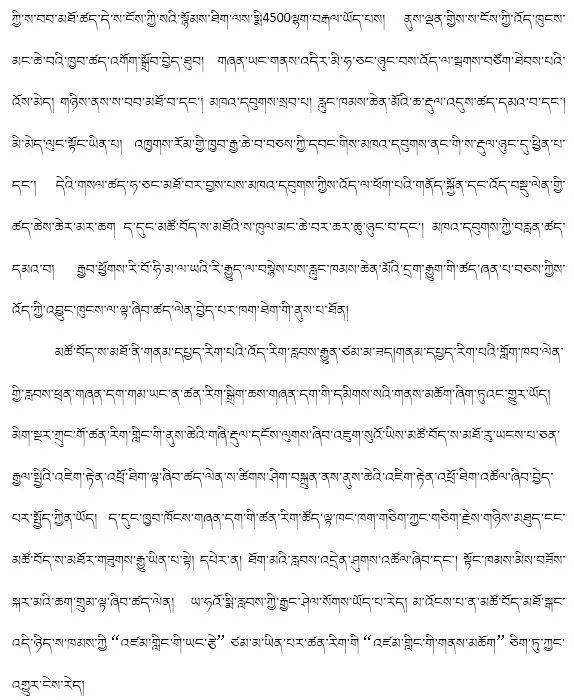 ཀྱི་ས་བབ་མཐོ་ཚད་དེ་ས་ངོས་ཀྱི་སའི་སྙོམས་ཐིག་ལས་སྨི4500ལྷག་བརྒལ་ཡོད་པས། ནུས་ལྡན་གྱིས་ས་ངོས་ཀྱི་འོད་ཁུངས་
མང་ཆེ་བའི་ཁྱབ་ཚད་འགོག་སྒྲོབ་བྱེད་ཐུབ། གཞན་ཡང་གནས་འདིར་མི་ཧ་ཅང་ཉུང་བས་འོད་ལ་སྦགས་བཙོག་ཐེབས་པའི་
འོས་མེད། གཉིས་ནས་ས་བབ་མཐོ་བ་དང་། མཁའ་དབུགས་སྲབ་པ། རླུང་ཁམས་ཆེན་མོའི་ཆ་རྡུལ་འདུས་ཚད་དམའ་བ་དང་།
མི་མེད་ལུང་སྟོང་ཡིན་པ། འཁྱགས་རོམ་གྱི་ཁྱབ་རྒྱ་ཆེ་བ་བཅས་ཀྱི་དབང་གིས་མཁའ་དབུགས་ནང་གི་ས་རྡུལ་ཉུང་དུ་ཕྱིན་པ་
དང་། དེའི་གསལ་ཚད་ཧ་ཅང་མཐོ་བར་བྱས་པས་མཁའ་དབུགས་ཀྱིས་འོད་ལ་ཕོག་པའི་གནོད་སྐྱོན་དང་འོད་བསྡུ་ལེན་གྱི་
ཚད་ཆེས་ཆེར་མར་ཆག ད་དུང་མཚོ་བོད་ས་མཐོའི་ས་ཁུལ་མང་ཆེ་བར་ཆར་ཆུ་ཉུང་བ་དང་། མཁའ་དབུགས་ཀྱི་བརླན་ཚད་
དམའ་བ། རྒྱབ་ཕྱོགས་རི་བོ་ཧི་མ་ལ་ཡའི་རི་རྒྱུད་ལ་བསྟེས་པས་རླུང་ཁམས་ཆེན་མོའི་དྲག་རྒྱུག་གི་ཚད་ཞན་པ་བཅས་ཀྱིས་
འོད་ཀྱི་འབྱུང་ཁུངས་ལ་ལྟ་ཞིབ་ཚད་ལེན་བྱེད་པར་ཁག་ཐེག་གི་ནུས་པ་ཐོན།
མཚོ་བོད་ས་མཐོ་ནི་གནམ་དཔྱད་རིག་པའི་འོད་རིག་རླབས་རྒྱུན་ཙམ་མ་ཟད།གནམ་དཔྱད་རིག་པའི་གློག་ཁབ་ལེན་
གྱི་རླབས་ཕྲན་གཞན་དག་གམ་ཡང་ན་ཚན་རིག་སྒྲིག་ཆས་གཞན་དག་གི་དམིགས་སའི་གནས་མཆོག་ཞིག་ཏུའང་གྱུར་ཡོད།
མིག་སྔར་ཀྲུང་གོ་ཚན་རིག་གླིང་གི་ནུས་ཆེའི་གཞི་རྡུལ་དངོས་ལུགས་ཞིབ་འཇུག་སུའོ་ཡིས་མཚོ་བོད་ས་མཐོ་རུ་ཡངས་པ་ཅན་
རྒྱལ་སྤྱིའི་འཇིག་རྟེན་འཕྲོ་ཐིག་ལྟ་ཞིབ་ཚད་ལེན་ས་ཚིགས་ཤིག་བསྐྲུན་ནས་ནུས་ཆེའི་འཇིག་རྟེན་འཕྲོ་ཐིག་འཚོལ་ཞིབ་བྱེད་
པར་སྤྱོད་ཀྱིན་ཡོད། ད་དུང་ཁྱབ་ཁོངས་གཞན་དག་གི་ཚན་རིག་ཚོད་ལྟ་ཁང་ཁག་གཅིག་ཀྱང་གཅིག་རྗེས་གཉིས་མཐུད་ངང་
མཚོ་བོད་ས་མཐོར་གཟུགས་རྒྱུ་ཡིན་པ་སྟེ། དཔེར་ན། ཐོག་མའི་རླབས་འདྲེན་ཤུགས་འཚོལ་ཞིབ་དང་། སྟོང་ཁམས་མིས་བཟོས་
སྐར་མའི་ཆག་གྲུམ་ལྟ་ཞིབ་ཚད་ལེན། ཡ་ཧའོ་སྨི་རླབས་ཀྱི་རྒྱང་ཤེལ་སོགས་ཡོད་པ་རེད། མ་འོངས་པ་ན་མཚོ་བོད་མཐོ་སྒང་
འདི་ཉིད་ས་ཁམས་ཀྱི “འཛམ་གླིང་གི་ཡང་རྩེ” ཙམ་མ་ཡིན་པར་ཚན་རིག་གི “འཛམ་གླིང་གི་གནས་མཆོག” ཅིག་ཏུ་ཀྱང་
འགྱུར་ངེས་རེད།